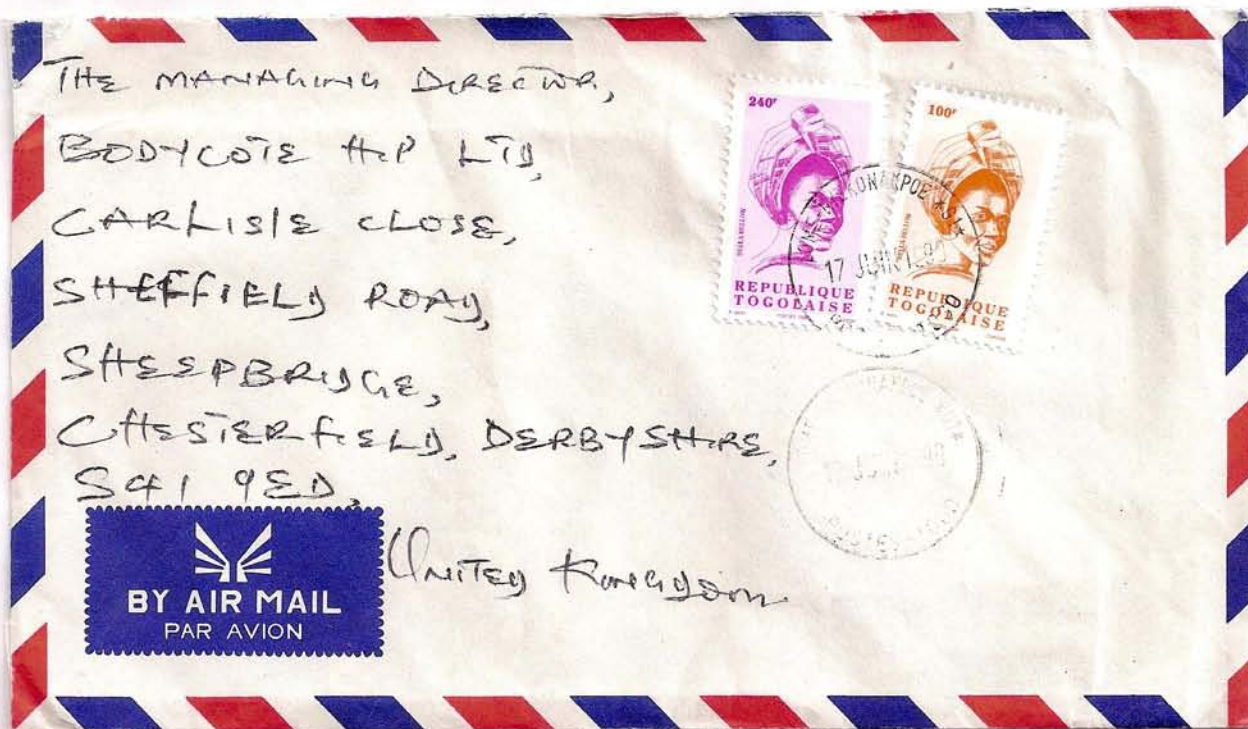 THE MANAGING DIRECTOR,
BODYCOTE HIP LTD,
CARLISLE CLOSE,
SHEFFIELD ROAD,
SHEEPBRIDGE,
CHESTERFIELD, DERBYSHIRE,
S41 9ED,
United Kingdom
BY AIR MAIL
PAR AVION
240F
REPUBLIQUE
TOGOLAISE
100F
REPUBLIQUE
TOGOLAISE
17 JUIN